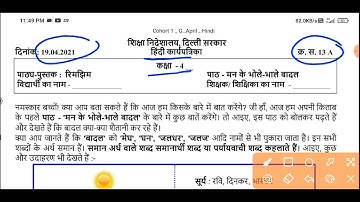 11:49 PM
82.0KB/s
Cohort 1 , G..April , Hindi
शिक्षा निदेशालय, दिल्ली सरकार
दिनांक: 19.04.2021 हिंदी कार्यपत्रिका क्र. सं. 13 A
कक्षा - 4
पाठ्य-पुस्तक : रिमझिम पाठ - मन के भोले-भाले बादल
विद्यार्थी का नाम - शिक्षक/ शिक्षिका का नाम -
नमस्कार बच्चों! क्या आप बता सकते हैं कि आज हम किसके बारे में बात करेंगे? जी हाँ, आज हम अपनी किताब
के पहले पाठ - 'मन के भोले-भाले बादल' के बारे में कुछ बातें करेंगे। तो आइए, इस पाठ को बोलकर पढ़ते हैं
और देखते हैं कि बादल क्या-क्या शैतानी कर रहे हैं।
क्या आप जानते हैं कि 'बादल' को 'मेघ', 'घन', 'जलधर', 'जलज' आदि नामों से भी पुकारा जाता है। इन सभी
शब्दों के अर्थ समान हैं। समान अर्थ वाले शब्द समानार्थी शब्द या पर्यायवाची शब्द कहलाते हैं। आइए, कुछ
और उदाहरण भी देखते हैं :-
सूर्य : रवि, दिनकर,